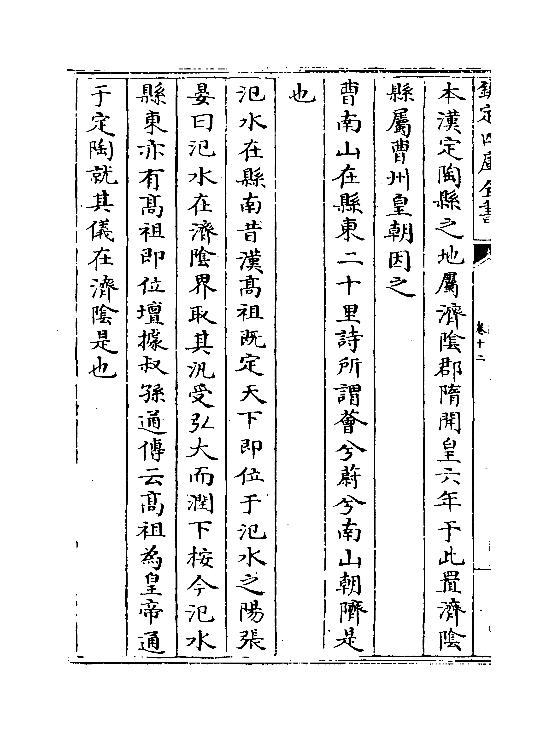 欽定四庫全書
卷十二
本漢定陶縣之地屬濟陰郡隋開皇六年于此置濟陰
縣屬曹州皇朝因之
曹南山在縣東二十里詩所謂薈兮蔚兮南山朝隮是
也
氾水在縣南昔漢高祖既定天下即位于氾水之陽張
晏曰氾水在濟陰界取其汎受弘大而潤下桉今氾水
縣東亦有髙祖即位壇據叔孫通傳云髙祖為皇帝通
于定陶就其儀在濟陰是也